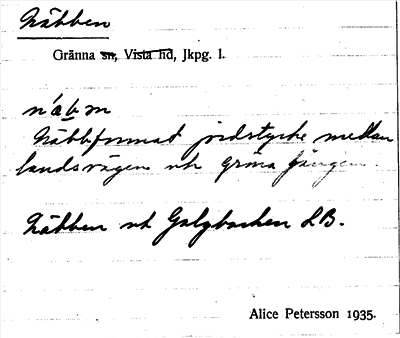 Näbben
Gränna sn, Vista hd, Jkpg. l.
näbm
Näbbformat jordstycke mellan
landsvägen och gröna gången.
Näbben och Galgbacken LB.
Alice Petersson 1935.